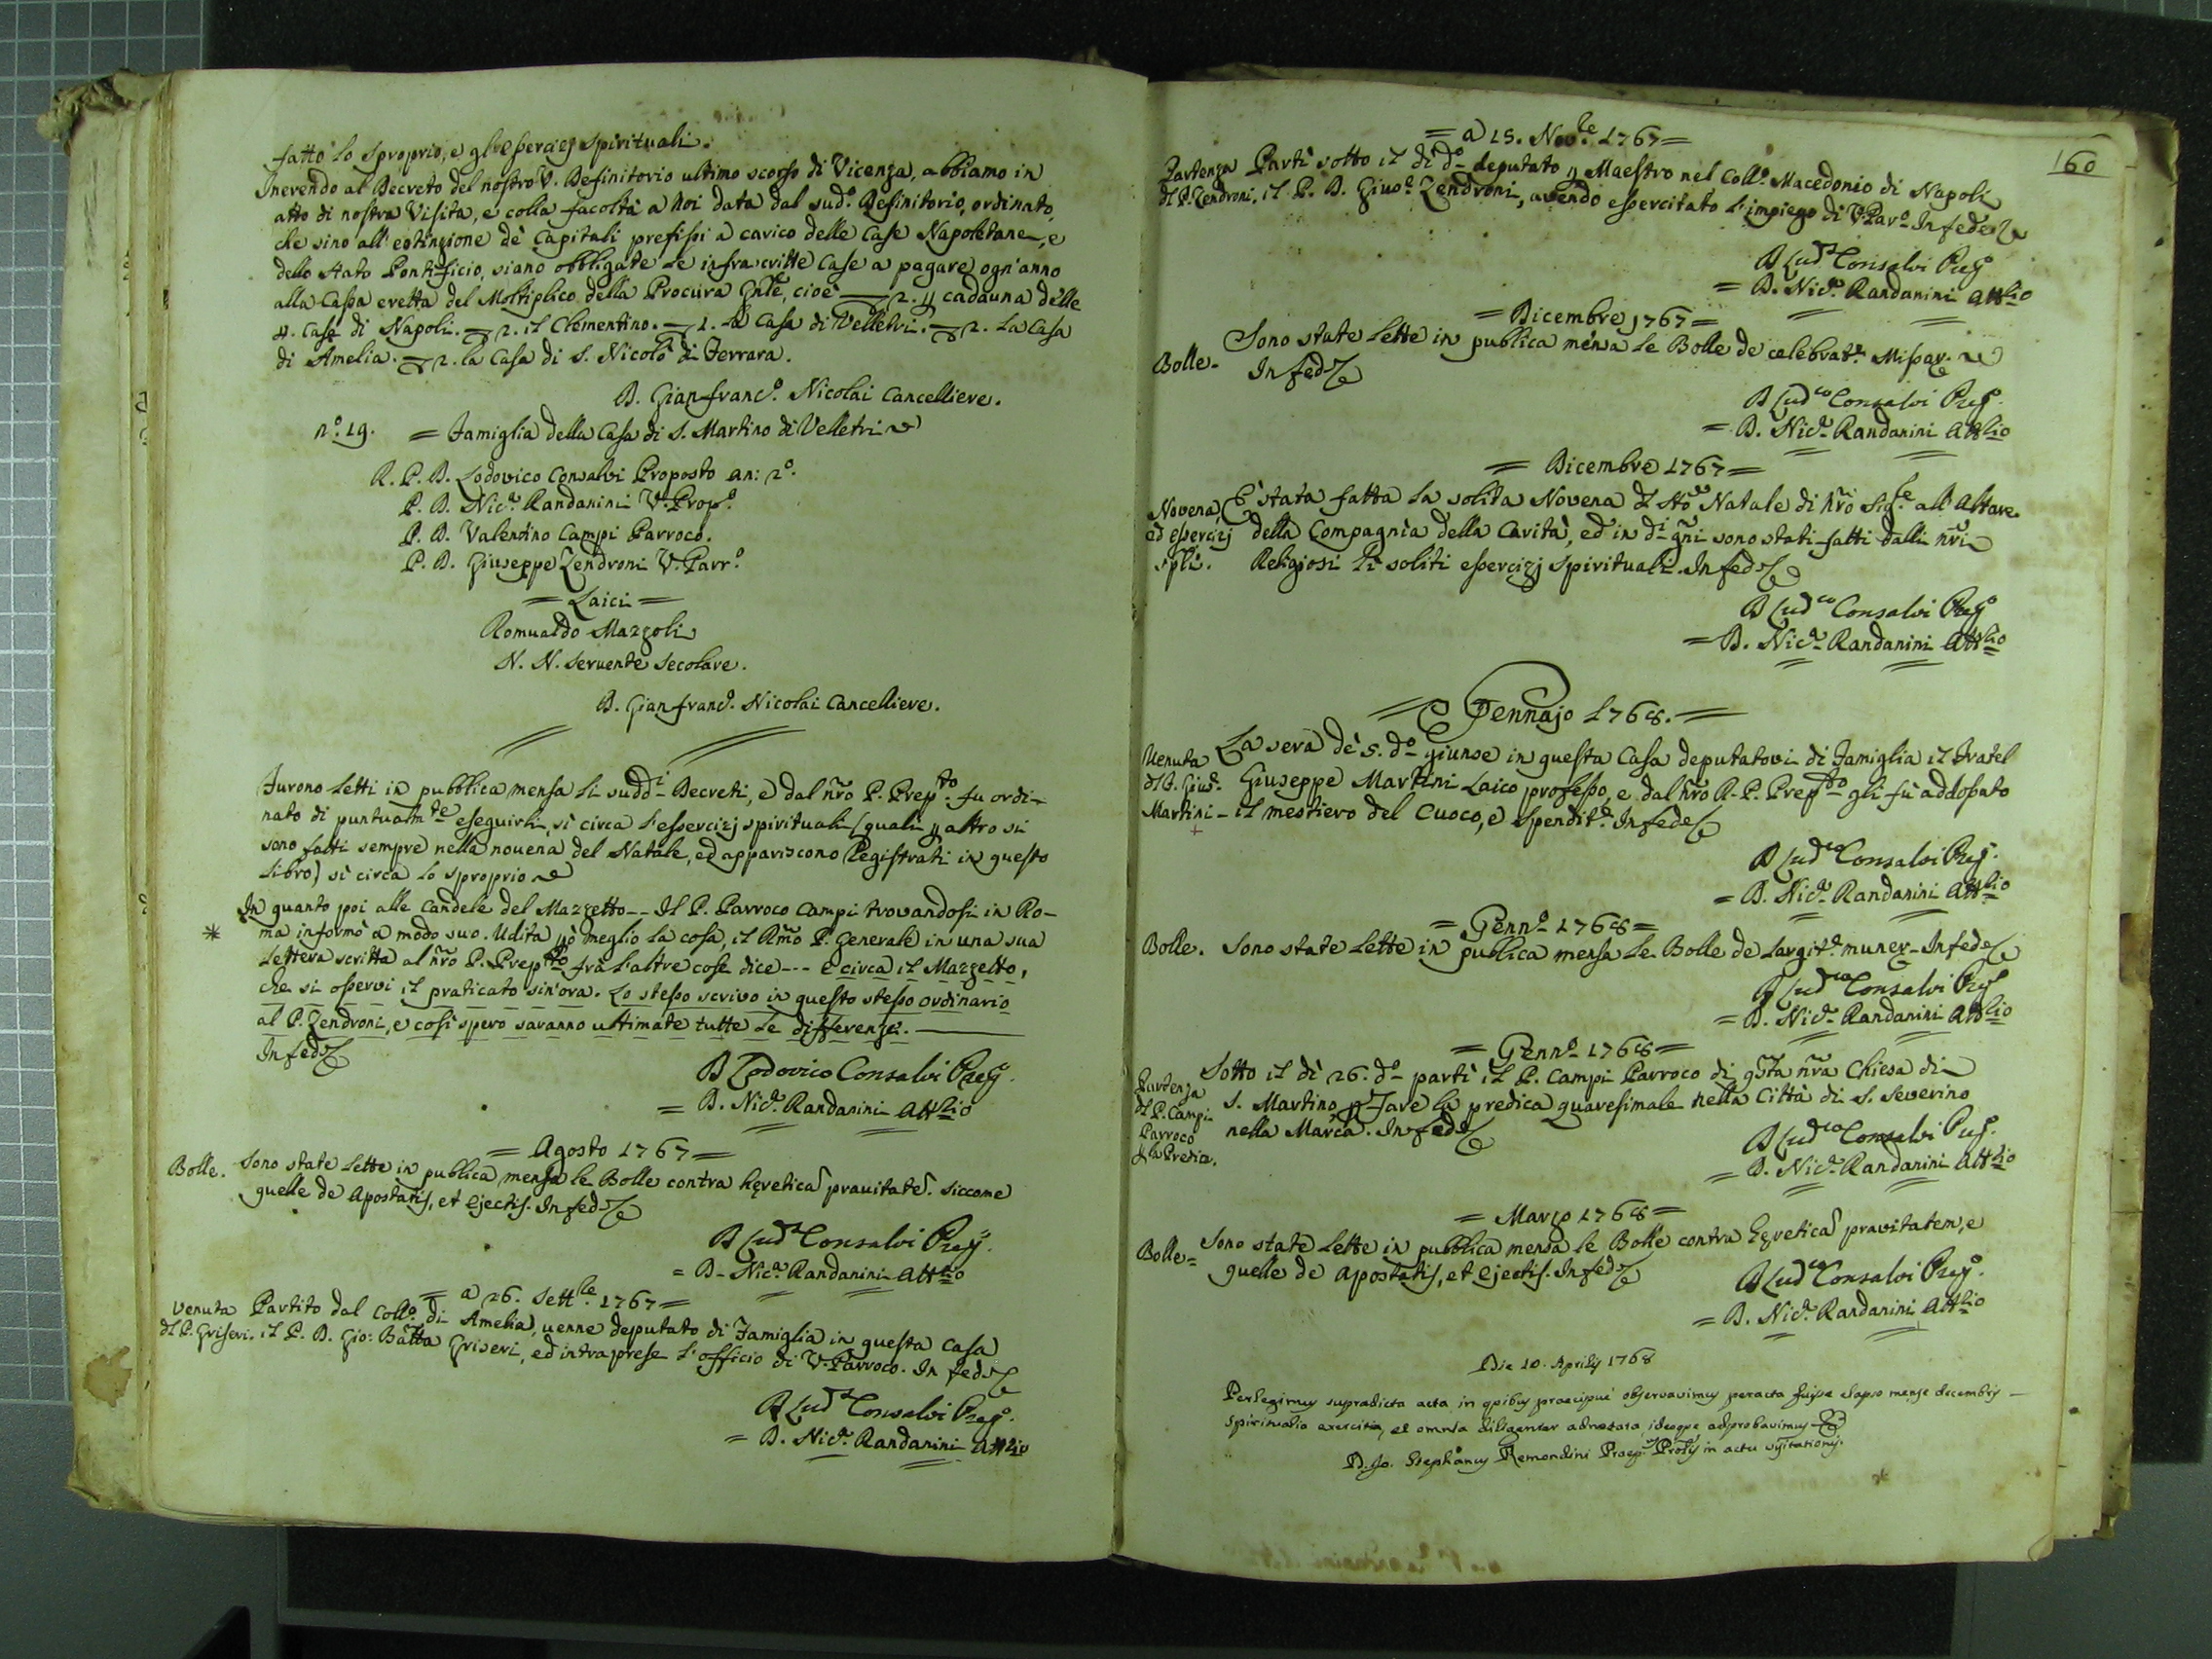 fatto lo sproprio, e gli essercizj spirituali.
Inerendo al Decreto del nostro V. Definitorio ultimo scorso di Vicenza, abbiamo in
atto di nostra Visita, e colla facoltà a Noi data dal sud.º Definitorio, ordinato,
che sino all'estinzione de Capitali prefissi a carico delle Case Napoletane, e
dello Stato Pontificio, siano obbligate le infrascritte Case a pagare ogn'anno
alla Cassa eretta del Moltiplico della Procura Gnle, cioè 2. p cadauna delle
4. Case di Napoli. 2. il Clementino. 1. La Casa di Velletri. 2. La Casa
di Amelia. 2. la Casa di S. Nicolò di Ferrara.
D. Gianfranc.º Nicolai Cancelliere.
n.º 19. = Famiglia della Casa di S. Martino di Velletri
R. P. D. Lodovico Consalvi Proposto an: 2º.
P. D. Nic.ª Randanini V. Prop.º
P. D. Valentino Campi Parroco.
P. D. Giuseppe Zendroni V. Parr.º
= Laici =
Romualdo Mazzoli
N. N. servente secolare.
D. Gianfranc.º Nicolai Cancelliere.
Furono letti in pubblica mensa li sudd.i Decreti, e dal nro P. Prep.to fu ordi-
nato di puntualm.te eseguirli, sì circa l'essercizj spirituali (quali p altro si
sono fatti sempre nella novena del Natale, ed appariscono Registrati in questo
libro) sì circa lo sproprio
In quanto poi alle Candele del Mazzetto-- Il P. Parroco Campi trovandosi in Ro-
* ma informò a modo suo. Udita pò meglio la cosa, il Rmo P. Generale in una sua
Lettera scritta al nro P. Prep.to frà l'altre cose dice --- e circa il Mazzetto,
che si osservi il praticato sin'ora. Lo stesso scrivo in questo stesso ordinario
al P. Zendroni, e così spero saranno ultimate tutte le differenze.
In fede
D Lodovico Consalvi Prep.º
= D. Nic.ª Randanini Att.rio
= Agosto 1767 =
Bolle. Sono state lette in publica mensa le Bolle contra hęretica pravitate. Siccome
quelle de Apostatis, et Ejectis. In fede
D Lud.co Consalvi Prep.º
= D. Nic.ª Randanini Att.rio
= a 26. Sett.bre 1767 =
Venuta Partito dal Coll.º di Amelia, venne deputato di Famiglia in questa Casa
dl P. Griseri. il P. D. Gio: Batta Griseri, ed intraprese l'officio di V. Parroco. In fede
D Lud.co Consalvi Prep.º
= D. Nic.ª Randanini Att.rio
160
= a 15. Nov.bre 1767 =
Partenza Partì sotto il dì d.º deputato p Maestro nel Coll.º Macedonio di Napoli
dl P. Zendroni. il P. D. Gius.e Zendroni, avendo essercitato l'impiego di V. Par.º In fede
D Lud.co Consalvi Prep.º
= D. Nic.ª Randanini Att.rio
= Dicembre 1767 =
Sono state lette in publica mensa le Bolle de celebrat.e Missar.
Bolle. In fede
D Lud.co Consalvi Prep.º
= D. Nic.ª Randanini Att.rio
= Dicembre 1767 =
Novena E' stata fatta la solita Novena dl Sto Natale di Nro Sig.re all'Altare
ed essercizj della Compagnia della Carità, ed in d.i gni sono stati fatti dalli nri
spli. Religiosi li soliti essercizj spirituali. In fede
D Lud.co Consalvi Prep.º
= D. Nic.ª Randanini Att.rio
= Gennajo 1768. =
Venuta La sera de 5. d.º giunse in questa Casa deputatovi di Famiglia il Fratel
dl F. Gius.e Giuseppe Martini Laico professo, e dal nro R. P. Prep.to gli fù addossato
Martini - il mestiero del Cuoco, e Spendit.e In fede
D Lud.co Consalvi Prep.º
= D. Nic.ª Randanini Att.rio
= Genn.º 1768 =
Bolle. Sono state lette in publica mensa le Bolle de largit.e muner. In fede
D Lud.co Consalvi Prep.º
= D. Nic.ª Randanini Att.rio
= Genn.º 1768 =
Partenza Sotto il dì 26. d.º partì il P. Campi Parroco di qsta nra Chiesa di
dl P. Campi S. Martino p fare la predica quaresimale nella Città di S. Severino
Parroco nella Marca. In fede
p la Predica.
D Lud.co Consalvi Prep.º
= D. Nic.ª Randanini Att.rio
= Marzo 1768 =
Bolle = Sono state lette in pubblica mensa le Bolle contra hęretica pravitatem, e
quelle de Apostatis, et Ejectis. In fede
D Lud.co Consalvi Prep.º
= D. Nic.ª Randanini Att.rio
Die 10. Aprilis 1768
Perlegimus supradicta acta in qpibus praecipuè observavimus peracta fuisse elapso mense decembris
spiritualia exercitia, et omnia diligenter adnotata, ideoque adprobavimus
D. Jo. Stephanus Remondini Praep. Prolis in actu visitationis.